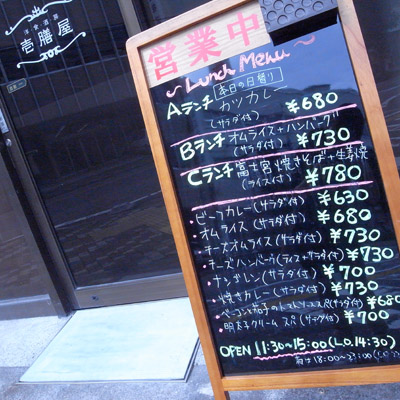 洋食酒房
壱膳屋
営業中
~ Lunch Menu ~
Aランチ 本日の日替り
カツカレー
(サラダ付) ¥680
Bランチ オムライス+ハンバーグ
(サラダ付) ¥730
Cランチ 富士宮焼きそば+生姜焼
(ライス付) ¥780
・ビーフカレー(サラダ付) ¥630
・オムライス(サラダ付) ¥680
・チーズオムライス(サラダ付) ¥730
・チーズハンバーグ(ライス+サラダ付) ¥730
・ナシゴレン(サラダ付) ¥700
・焼きカレー(サラダ付) ¥730
・ベーコンと茄子のトマトソーススパ(サラダ付) ¥680
・明太子クリームスパ(サラダ付) ¥700
OPEN 11:30~15:00(L.O.14:30)
夜は18:00~23:00(L.O